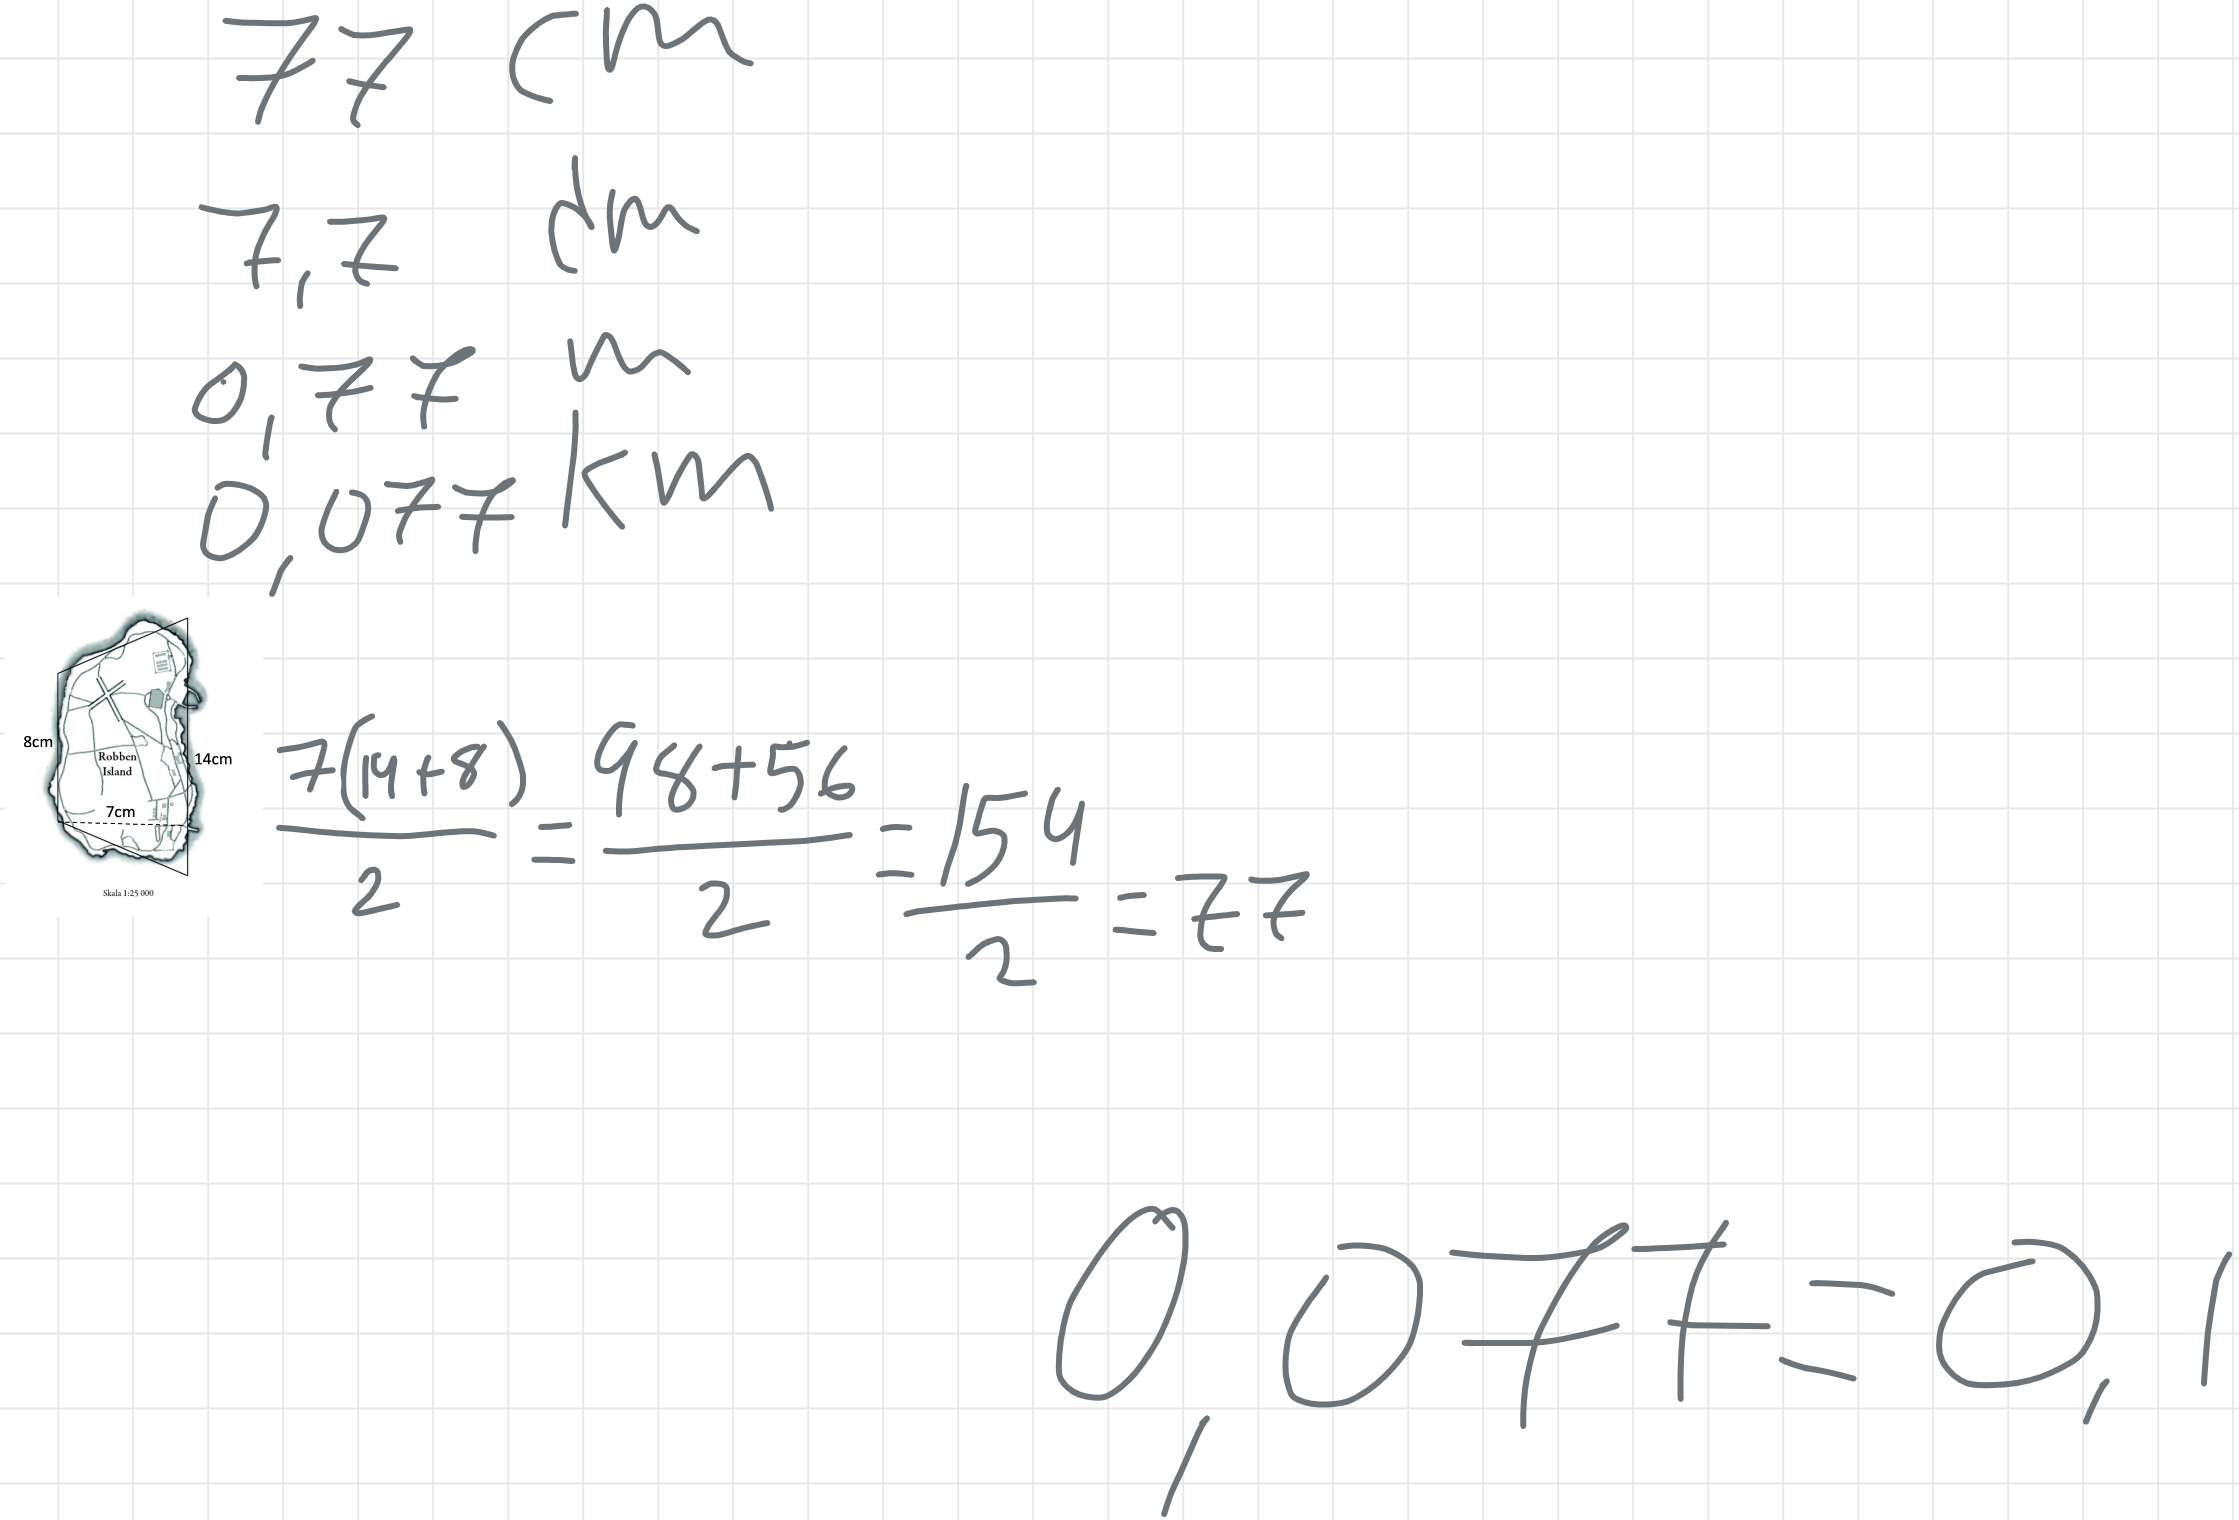 77 cm
7,7 dm
0,77 m
0,077 km
8cm
Robben
Island
14cm
7cm
Skala 1:25 000
7(14+8)/2 = 98+56/2 = 154/2 = 77
0,077=0,1